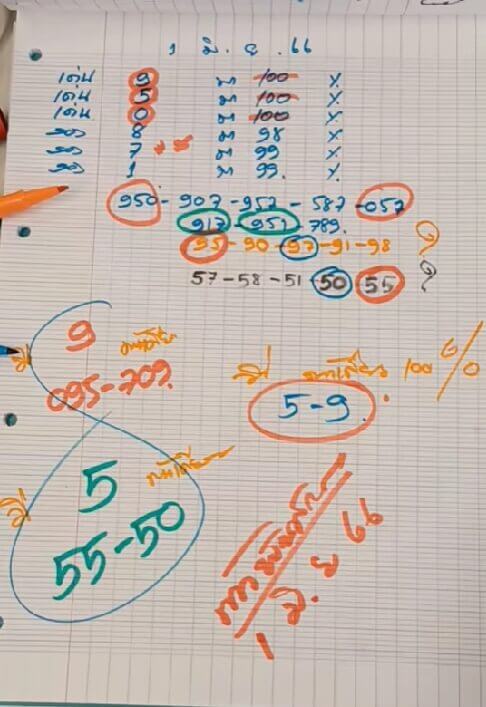 1 มิ.ย.66
เด่น 9 มา 100 %
เด่น 5 มา 100 %
เด่น 0 มา 100 %
รอง 8 มา 98 %
รอง 7 มา 99 %
รอง 1 มา 99. %
950-907-957-587-057
917-951-789.
95-90-97-91-98
57-58-51-50-55
มี 9
095-709.
มี 100%
5-9.
มี 5
55-50
1 มิ.ย 66